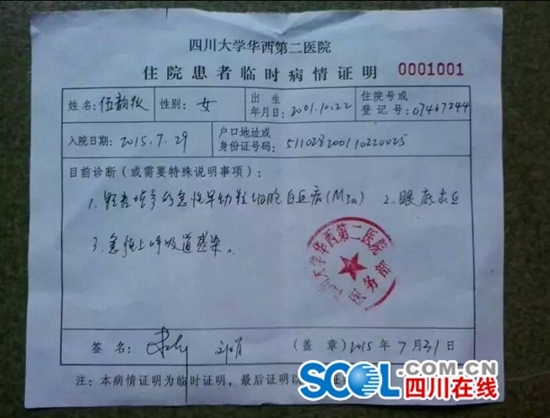 四川大学华西第二医院
住院患者临时病情证明 0001001
姓名: 伍韵 性别: 女 出生年月日: 2001.10.22 住院号或登记号: 07467244
入院日期: 2015.7.29 户口地址或身份证号码: 511028200110220025
目前诊断(或需要特殊说明事项):
1. 颗粒增多的急性早幼粒细胞白血病(M3a) 2. 眼底出血
3. 急性上呼吸道感染。
四川大学华西第二医院
医务部
签名: (盖章) 2015年7月31日
注:本病情证明为临时证明,最后证明以
SCOL.COM.CN
四川在线